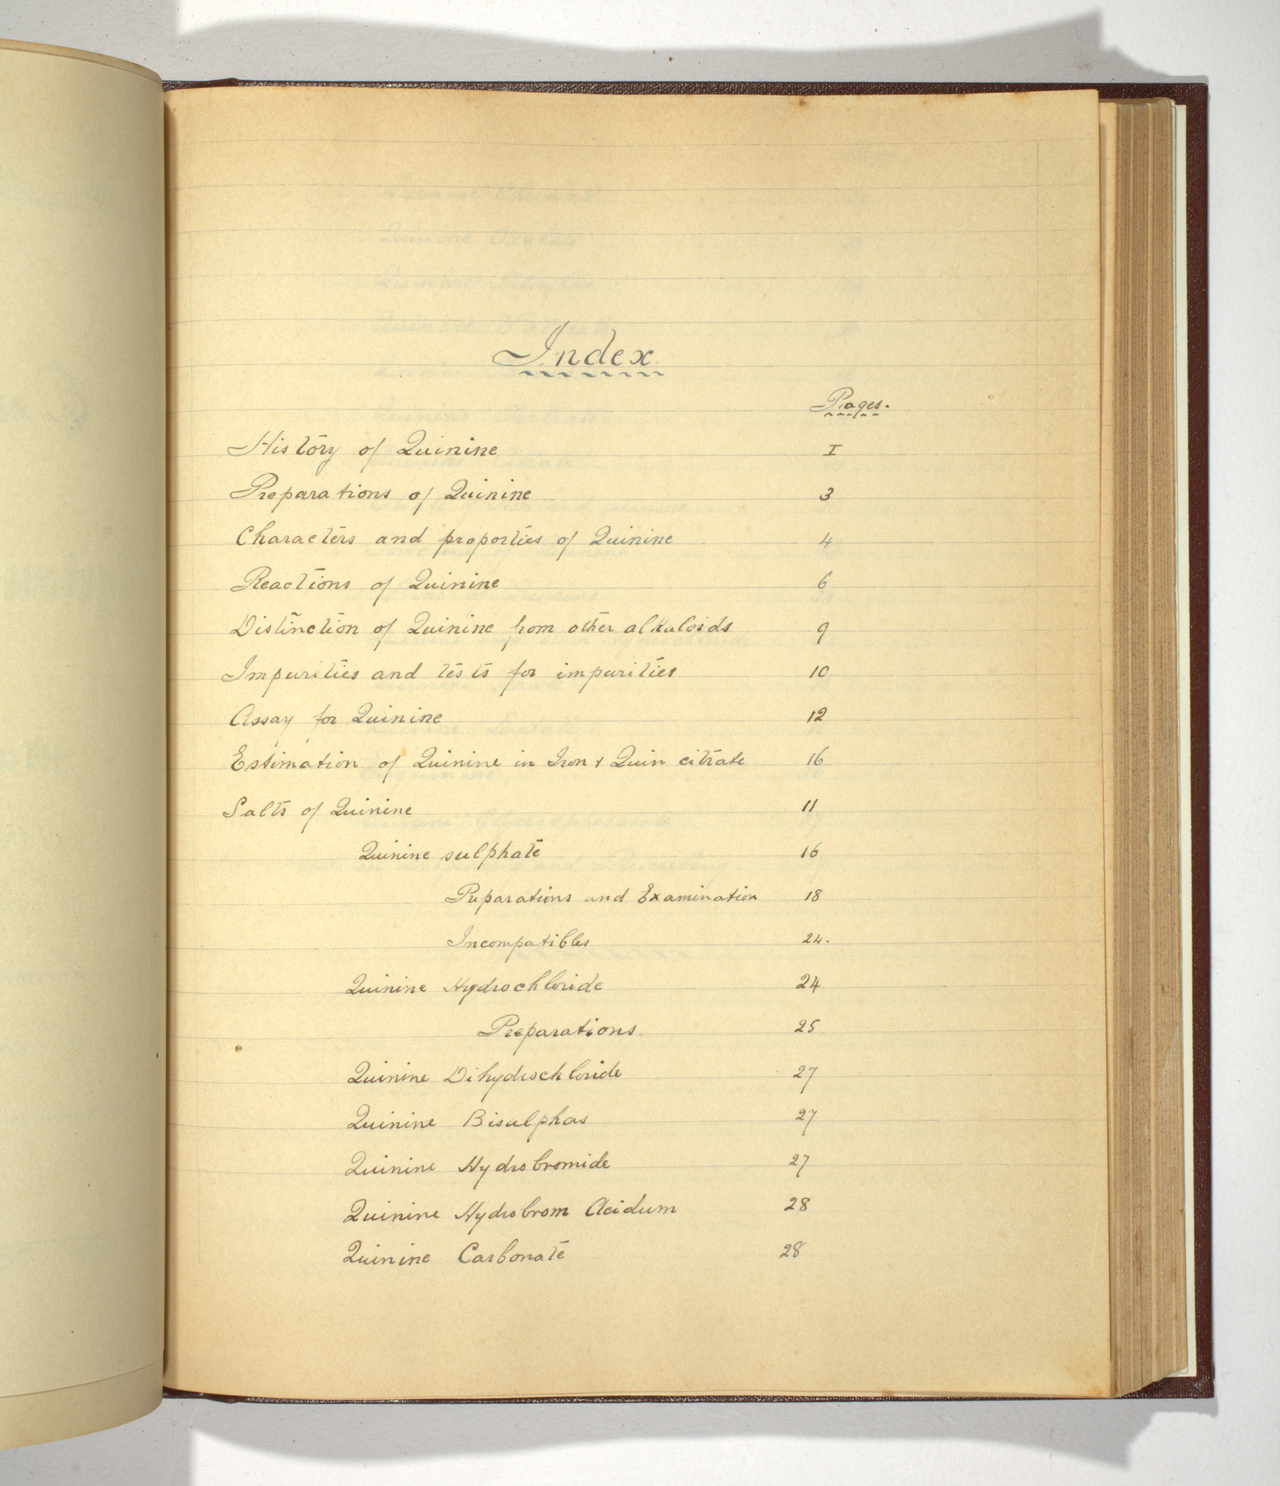 Index
Pages.
History of Quinine I
Preparations of Quinine 3
Characters and properties of Quinine 4
Reactions of Quinine 6
Distinction of Quinine from other alkaloids 9
Impurities and tests for impurities 10
Assay for Quinine 12
Estimation of Quinine in Iron & Quin citrate 16
Salts of Quinine 11
Quinine sulphate 16
Preparations and Examination 18
Incompatibles 24.
Quinine Hydrochloride 24
Preparations 25
Quinine Dihydrochloride 27
Quinine Bisulphas 27
Quinine Hydrobromide 27
Quinine Hydrobrom Acidum 28
Quinine Carbonate 28